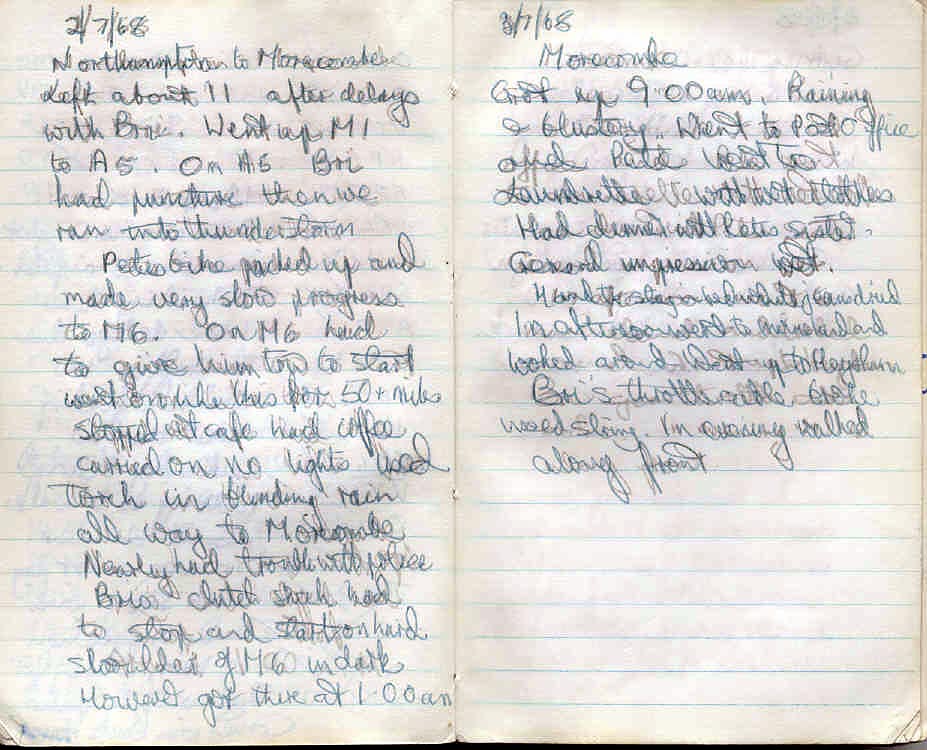 2/7/68
Northampton to Morecambe
Left about 11 after delays
with Bri. Went up M1
to A5. On A5 Bri
had puncture then we
ran into thunderstorm
Petes bike packed up and
made very slow progress
to M6. On M6 had
to give him tow to start
went on like this for 50+ miles
stopped at cafe had coffee
carried on no lights used
torch in blinding rain
all way to Morecambe
Nearly had trouble with police
Bris clutch stuck had
to stop and start on hard
shoulder of M6 in dark
However got there at 1.00am
3/7/68
Morecambe
Got up 9.00am. Raining
& blustery. Went to Post Office
Pete went to
Laundrette with wet clothes
Had dinner with Petes sister.
General impression wet.
In afternoon went to and
looked around went up to Heysham
Bri's throttle cable broke
used string. In evening walked
along front